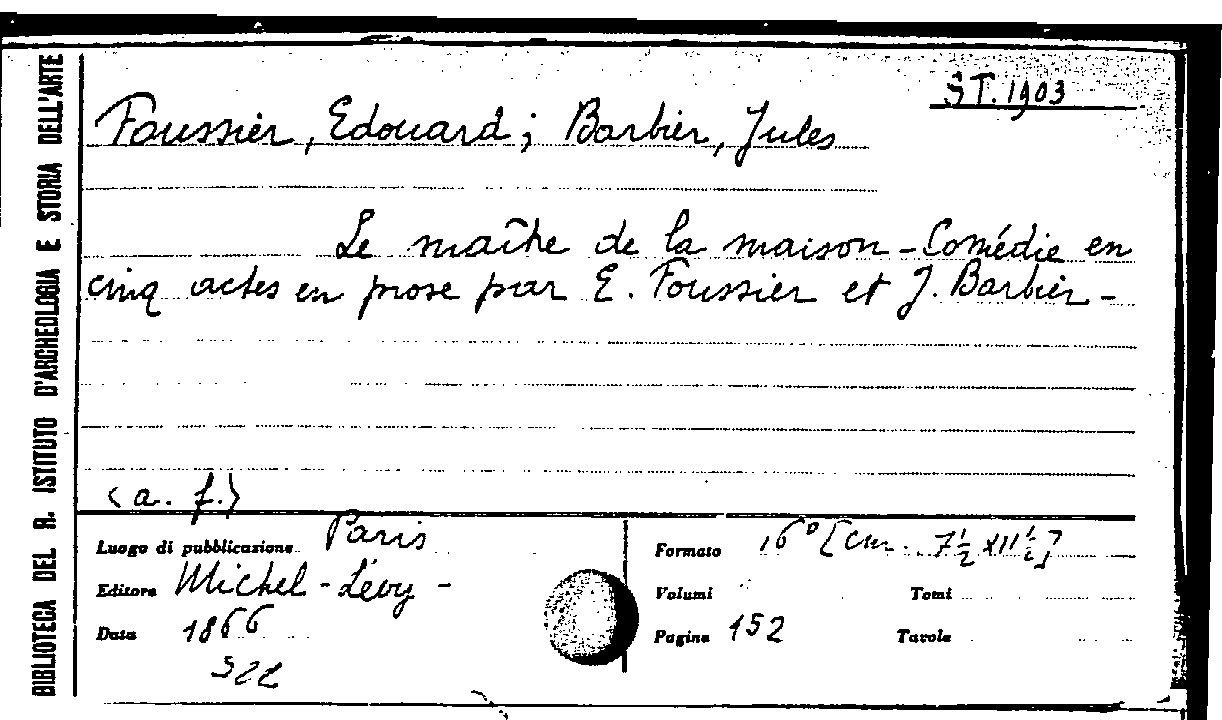 BIBLIOTECA DEL R. ISTITUTO D'ARCHEOLOGIA E STORIA DELL'ARTE
ST. 1903
Foussier, Edouard; Barbier, Jules
Le maître de la maison - Comédie en
cinq actes en prose par E. Foussier et J. Barbier -
(a. f.)
Luogo di pubblicazione Paris
Editore Michel - Lévy -
Data 1866
522
Formato 16° [cm. 7½ x 11½]
Volumi Tomi
Pagine 152 Tavole